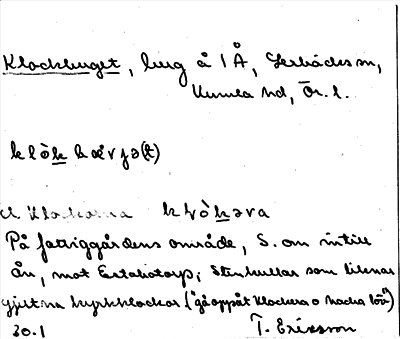 Klockberget, berg å 1 Å, Lerbäcks sn,
Kumla hd, Ör. l.
klòkbærjə(t)
Klockarna klòkəra
På fattiggårdens område, S. om intill
ån, mot Estabotorp; Stenhällar som liknar
gjutna kyrkklockor (gå oppåt klockera o hacka löv)
30.1 T. Ericsson